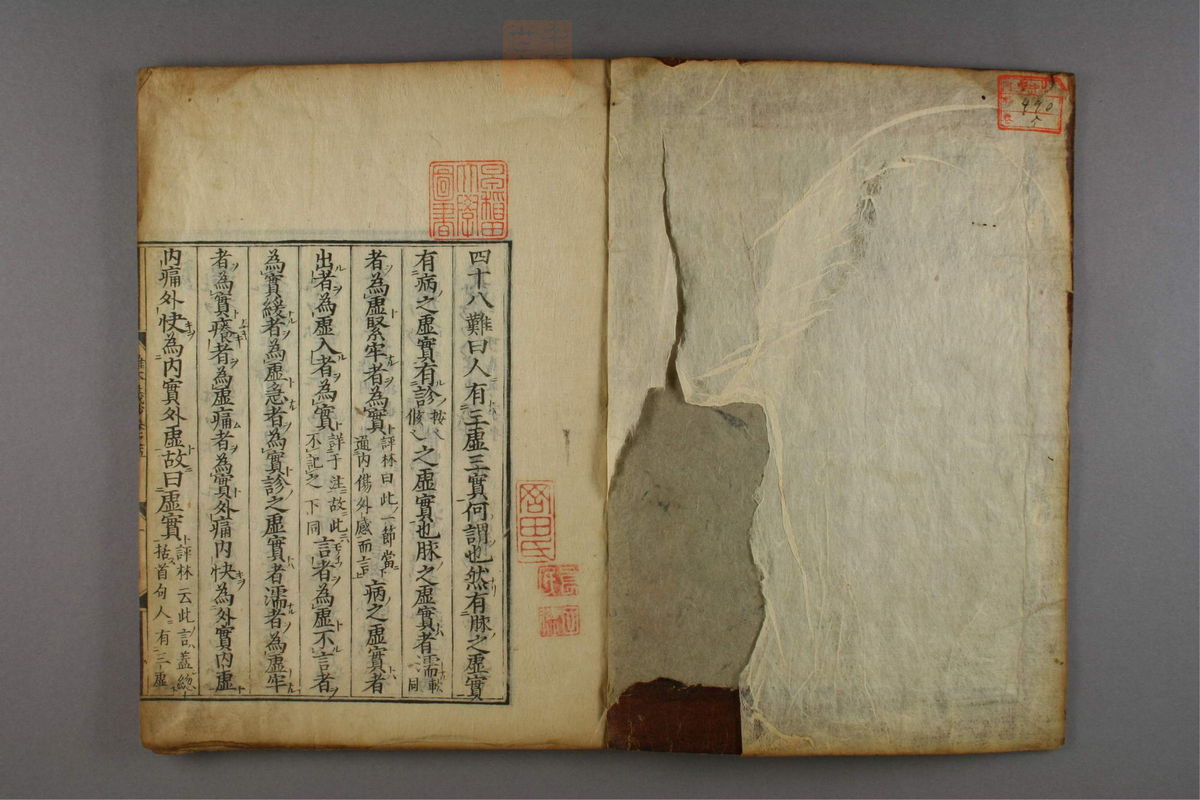 四十八難曰人有三虛三實何謂也然有脉之虛實
有病之虛實有診之虛實也脉之虛實者濡軟同
者為虛緊牢者為實評林曰此一節當通內傷外感而言病之虛實者
出者為虛入者為實詳于注故此不記之下同言者為虛不言者
為實緩者為虛急者為實診之虛實者濡者為虛牢
者為實癢者為虛痛者為實外痛內快為外實內虛
內痛外快為內實外虛故曰虛實評林云此言蓋總括首句人有三虛
早稲田
大學
圖書
490